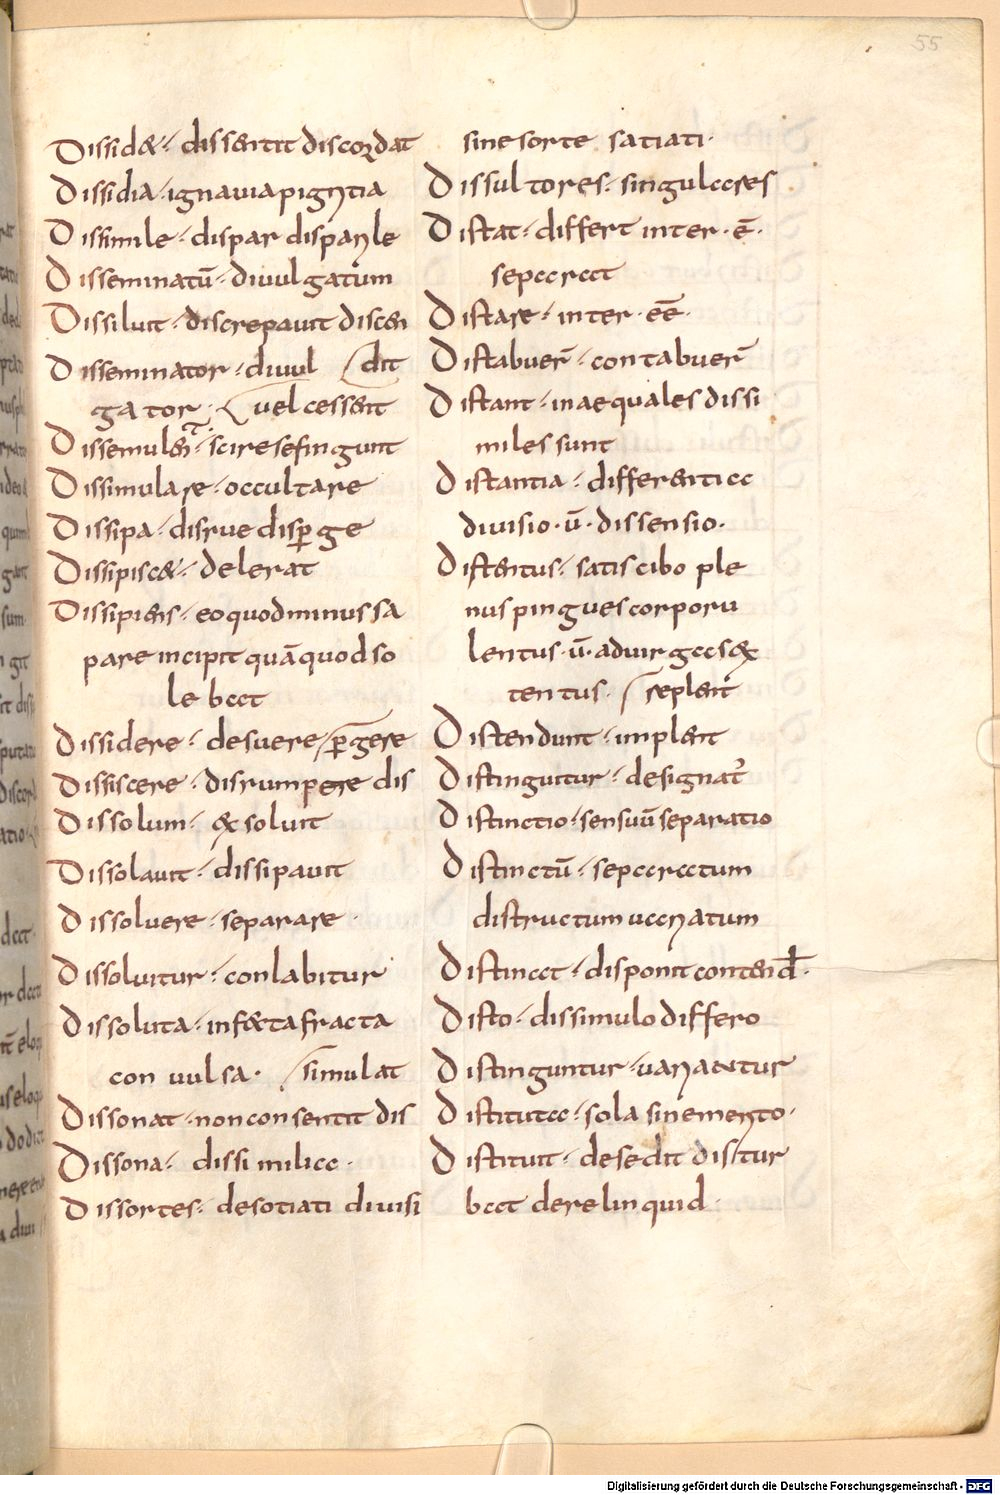 55
Dissid&· dissentit discordat
Dissidia· ignauia pigritia
Dissimile· dispar disparile
Disseminatū· diuulgatum
Dissiluit· discrepauit discen
Disseminator· diuul dit
gator· uel cessent
Dissemulent· scire se fingunt
Dissimulare· occultare
Dissipa· disrue disꝑge
Dissipisc&· delerat
Dissipiens· eo quod minus sa
pare incipit quā quod so
lebat
Dissidere· desuere ꝑgere
Dissiscere· disrumpere dis
Dissolum· &soluit
Dissolauit· dissipauit
Dissoluere· separare·
Dissoluitur· conlabitur
Dissoluta· inf&ta fracta
conuulsa· simulat
Dissonat· non consentit dis
Dissona· dissimilia·
Dissortes· desotiati diuisi
sine sorte satiati·
Dissultores· singulares
Distat· differt inter·ē·
separat
Distare· inter·ēē·
Distabuer̄· contabuer̄
Distant· inaequales dissi
miles sunt
Distantia· differentia
diuisio·ū·dissensio·
Distentus· satis cibo ple
nus pingues corporu
lentus·ū·ad uirgas &
tentus· replent
Distendunt· implent
Distinguitur· designat̄
Distinctio· sensuū separatio
Distinctū· separatum
distructum uariatum
Distincat· disponit contend̄·
Disto· dissimulo differo
Distinguntur· uariantur
Distituta· sola sine merito·
Distituit· desedit disitur
bat derelinquid·
Digitalisierung gefördert durch die Deutsche Forschungsgemeinschaft - DFG